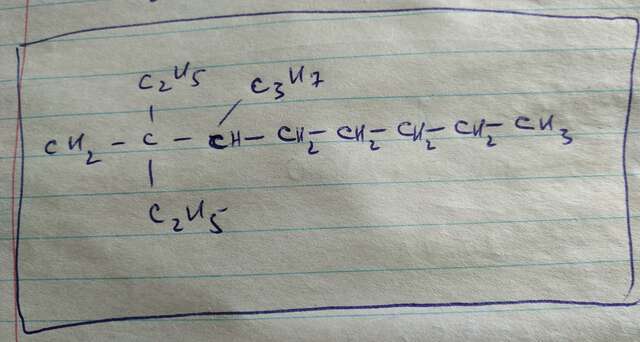 C2H5 C3H7
CH2 - C - CH - CH2 - CH2 - CH2 - CH2 - CH3
C2H5